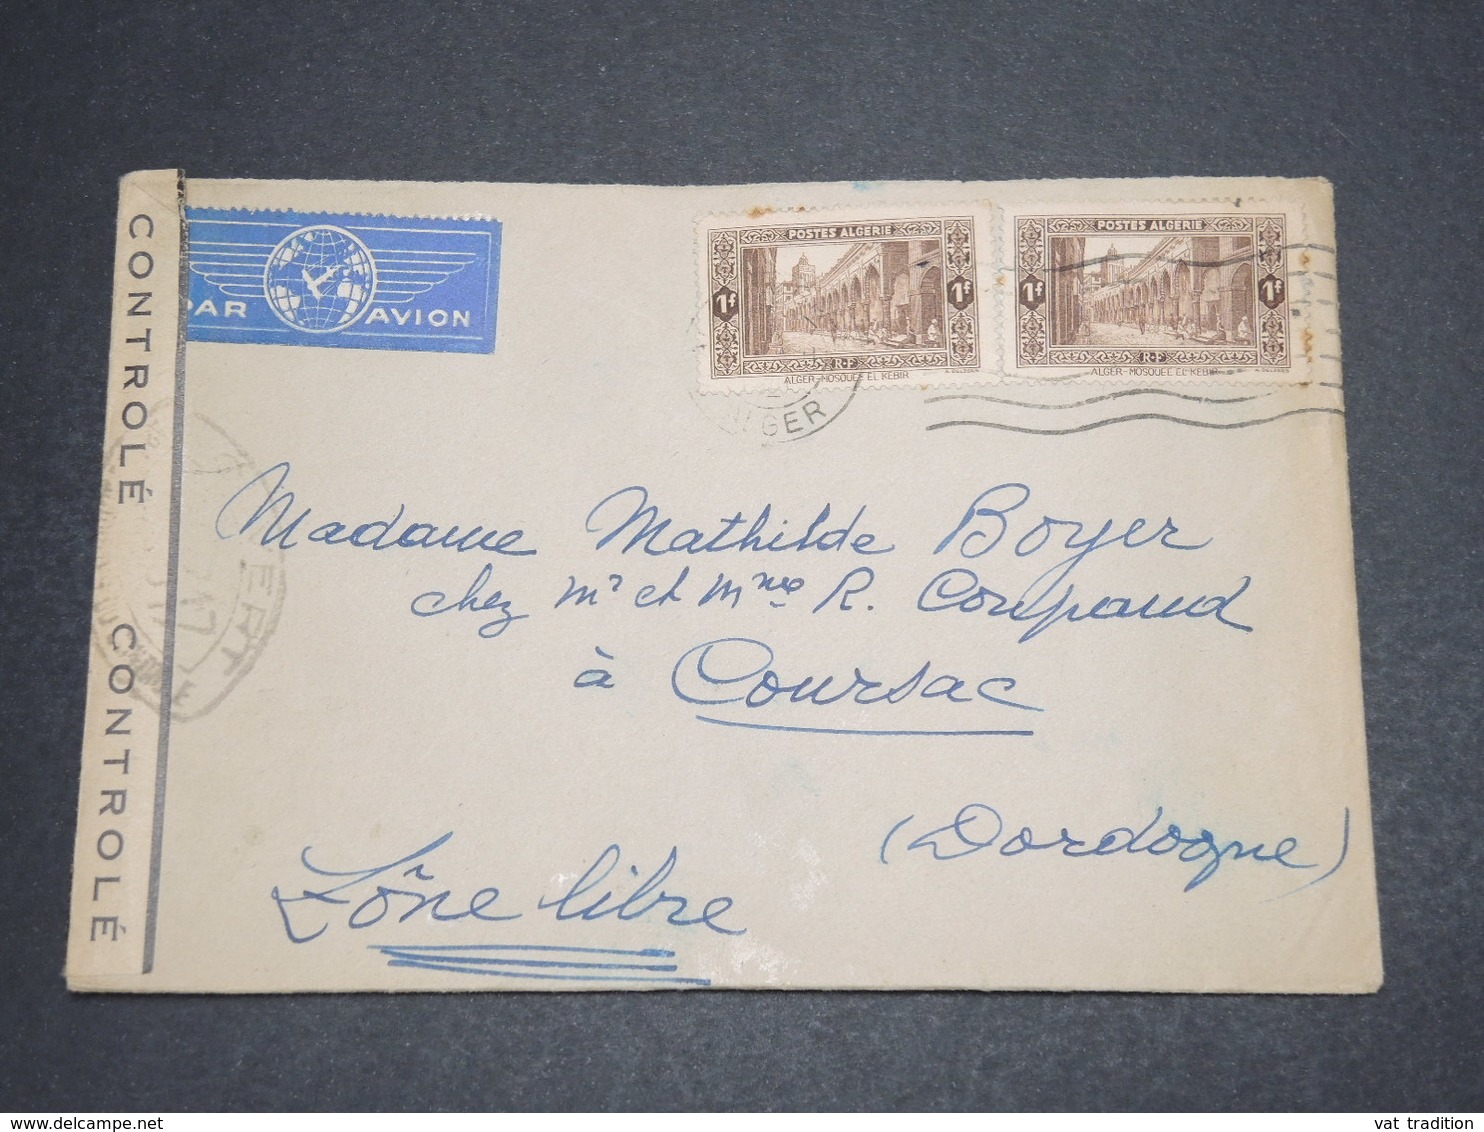 CONTROLÉ
CONTROLÉ
PAR AVION
POSTES ALGERIE
1f 1f
RF
ALGER-MOSQUÉE EL KÉBIR
POSTES ALGERIE
1f 1f
RF
ALGER-MOSQUÉE EL KÉBIR
ALGER
Madame Mathilde Boyer
chez Mr et Mme R. Coupaud
à Coursac
(Dordogne)
Zône libre
vat tradition